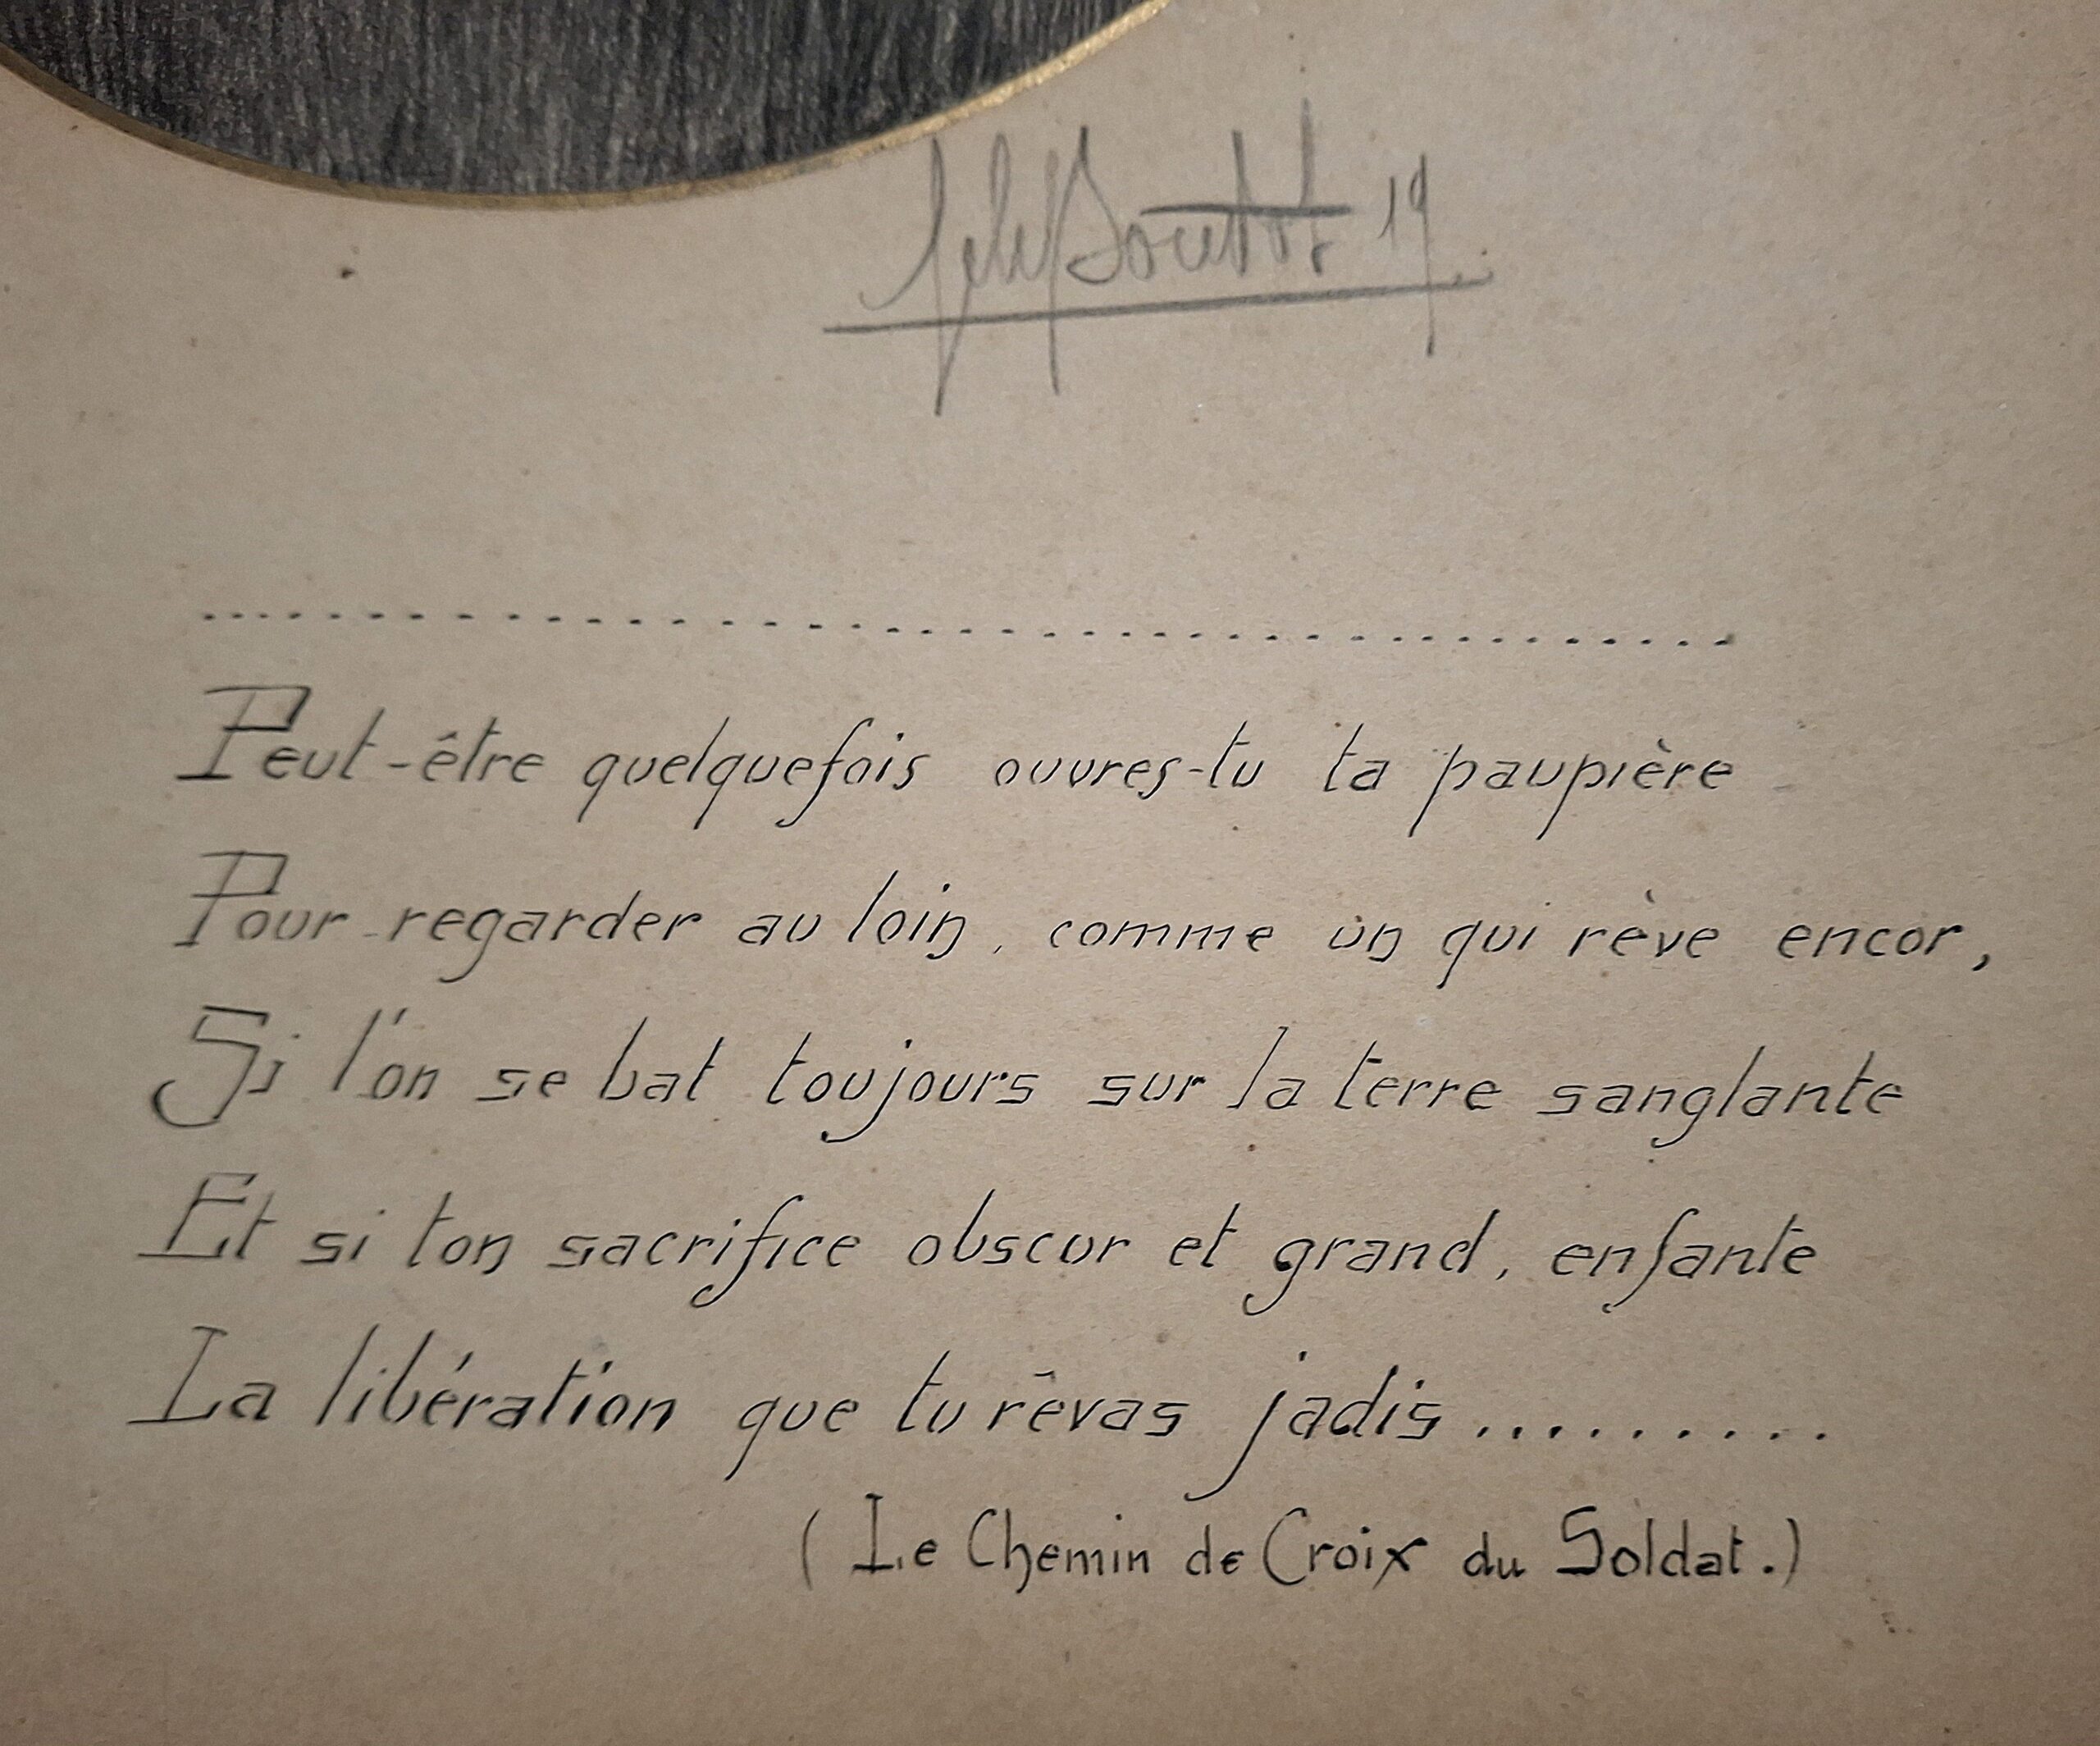 19
.......................................
Peut-être quelquefois ouvres-tu ta paupière
Pour regarder au loin, comme un qui rêve encor,
Si l'on se bat toujours sur la terre sanglante
Et si ton sacrifice obscur et grand, enfante
La libération que tu rêvas jadis .........
( Le Chemin de Croix du Soldat.)